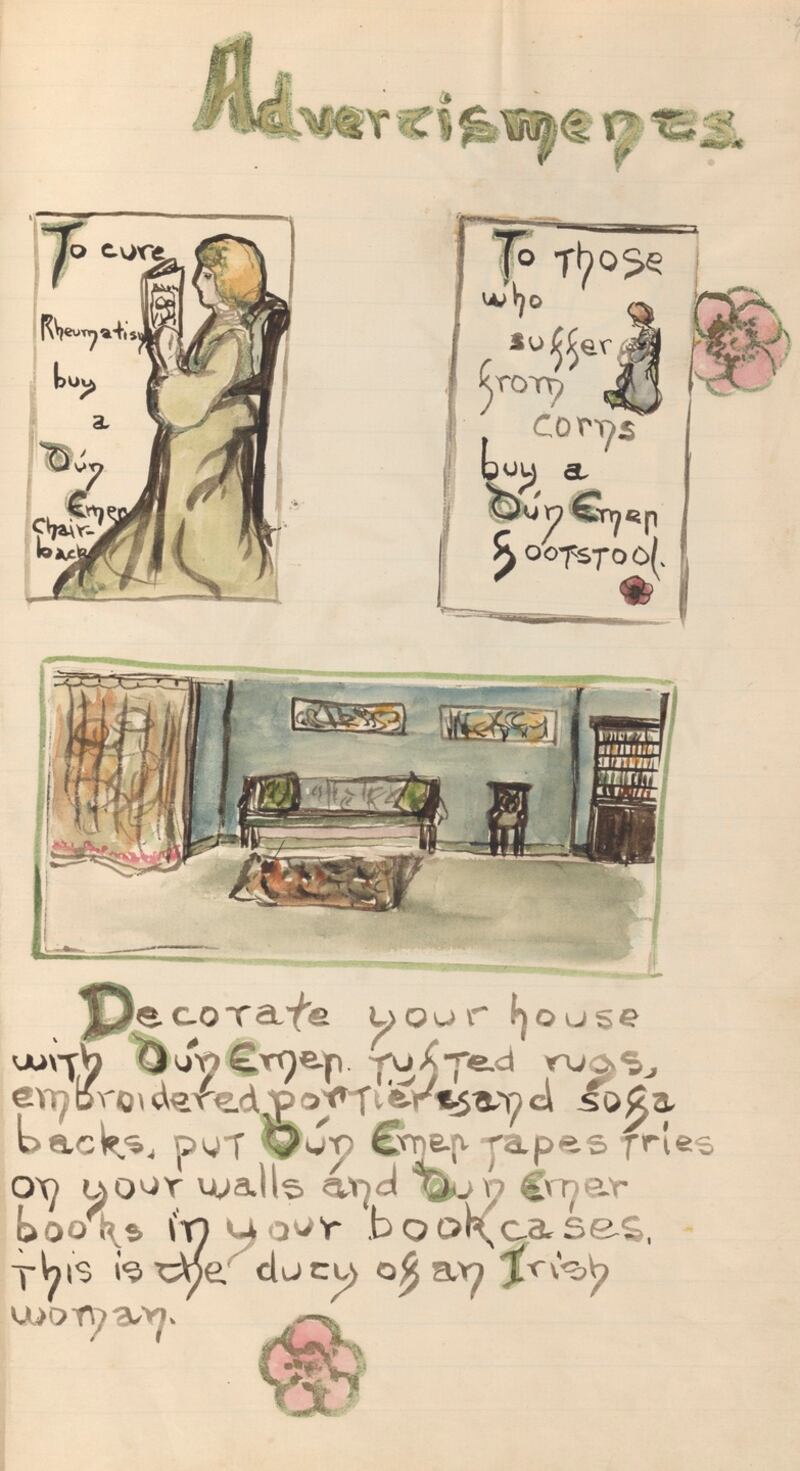 Advertisments.
To cure
Rheumatism
buy
a
Dún
Emer
Chair-
back
To those
who
suffer
from
corns
buy a
Dún Emer
Footstool.
Decorate your house
with Dún Emer tufted rugs,
embroidered portieres and sofa
backs, put Dún Emer tapestries
on your walls and Dun Emer
books in your bookcases.
This is the duty of an Irish
woman.